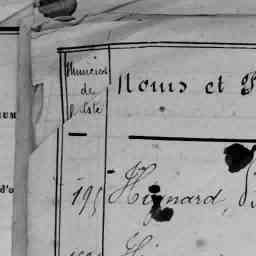 Numéros
de
Liste
Noms et P
195 Hignard,
d'o